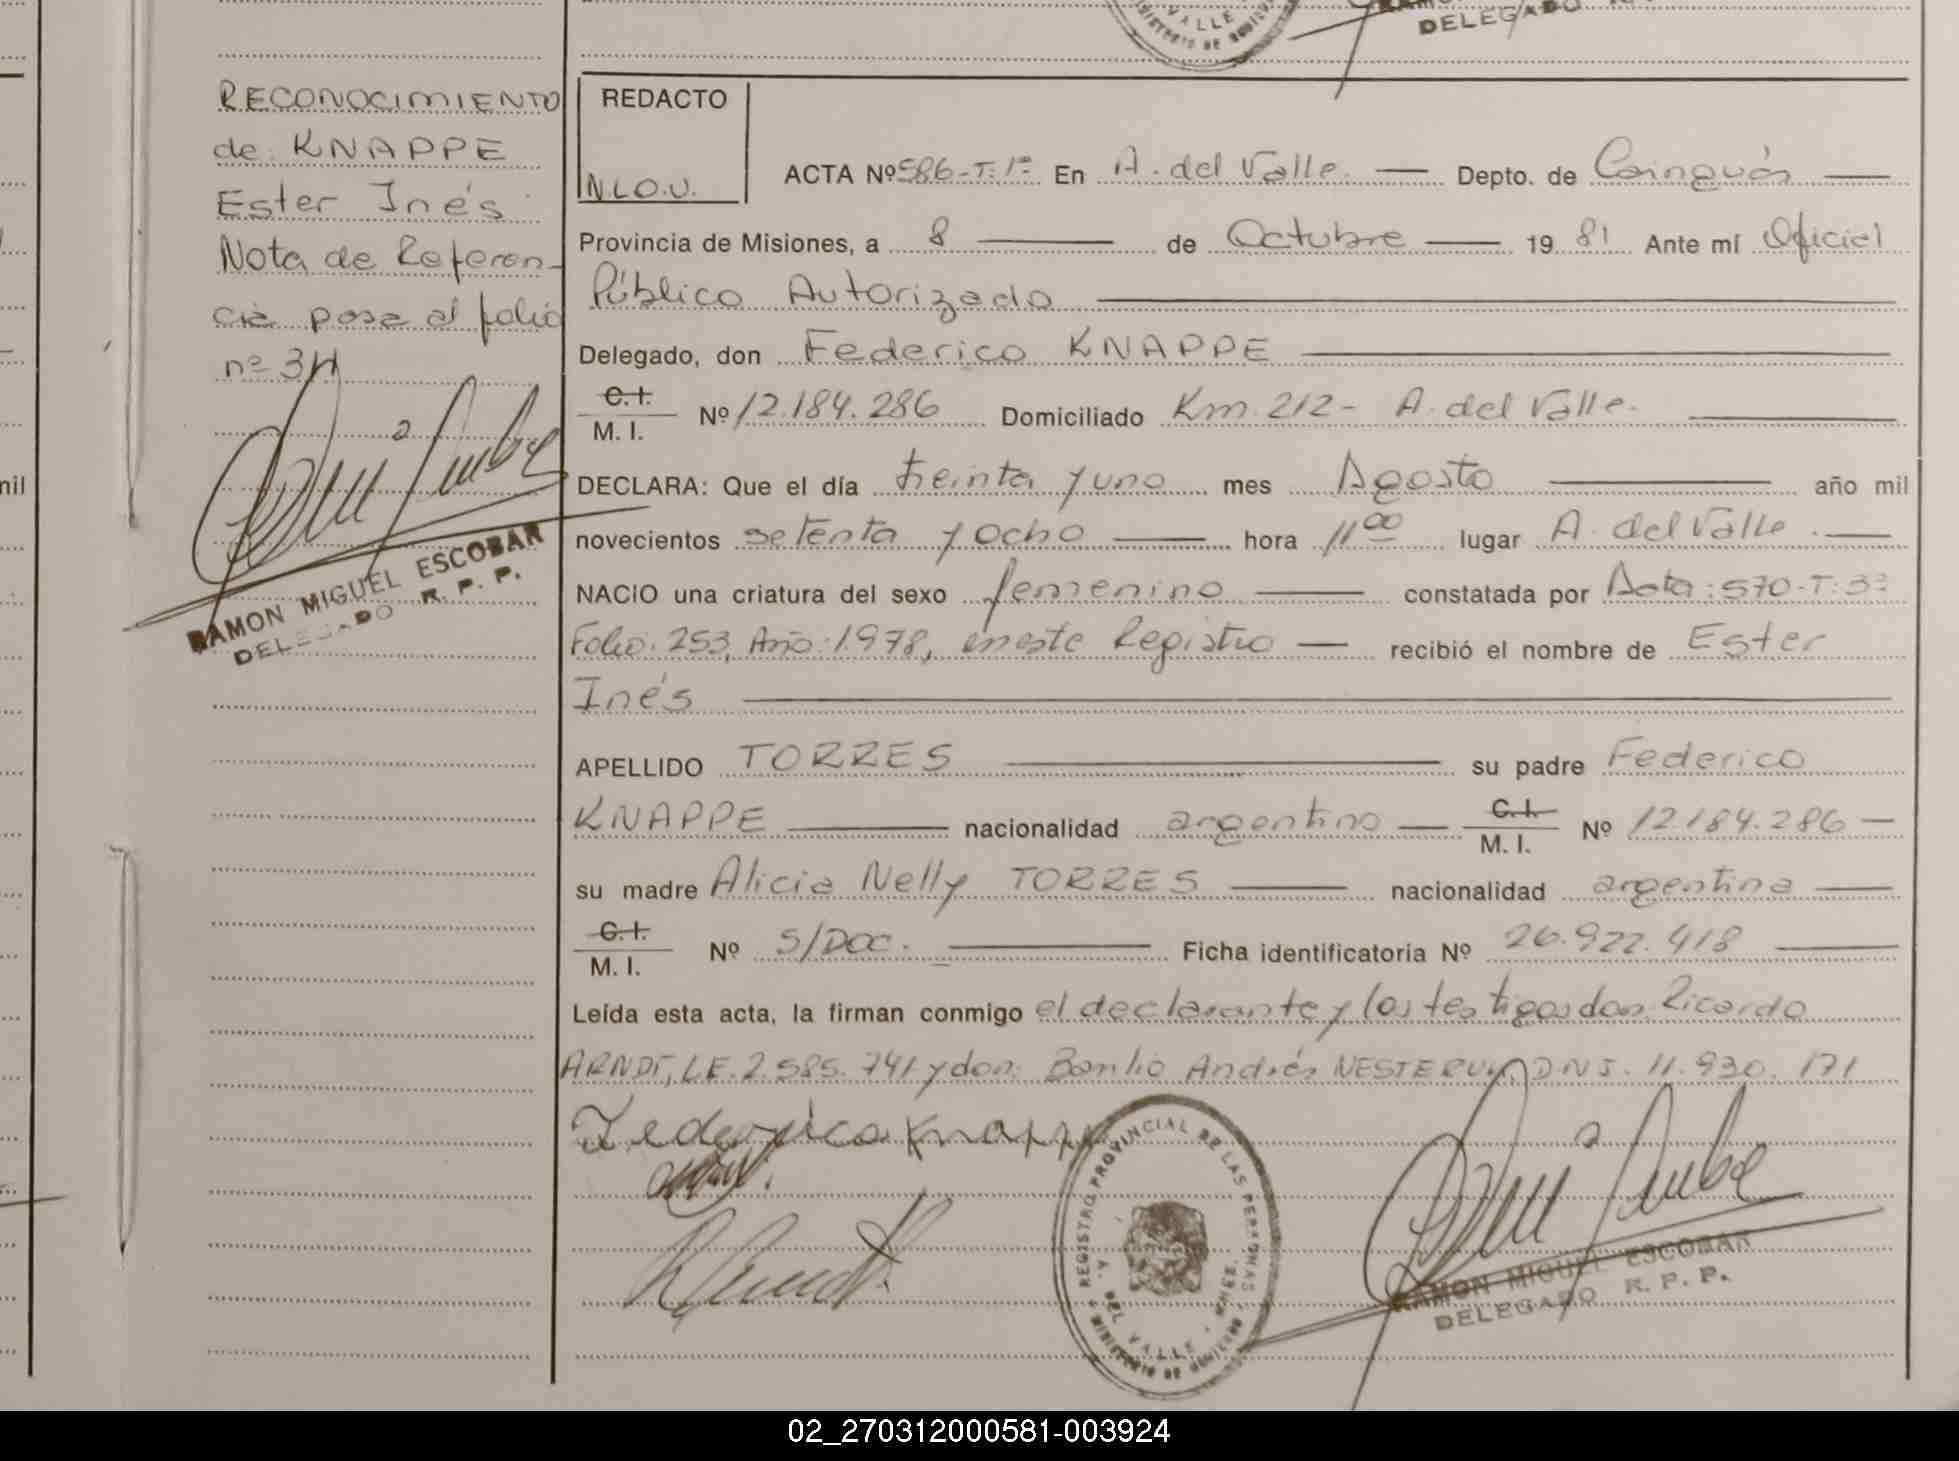 VALLE
MINISTERIO DE GOBIERNO
DELEGADO
RECONOCIMIENTO
de KNAPPE
Ester Inés
Nota de Referen-
cia pasa al folio
nº 311
RAMON MIGUEL ESCOBAR
DELEGADO R. P. P.
mil
REDACTO
N.L.O.U.
ACTA Nº 586-T:1º En A. del Valle. Depto. de Cainguás
Provincia de Misiones, a 8 de Octubre 19 81 Ante mí Oficial
Público Autorizado
Delegado, don Federico KNAPPE
C.I. M. I. Nº 12.184.286 Domiciliado Km 212- A. del Valle.
DECLARA: Que el día treinta y uno mes Agosto año mil
novecientos setenta y ocho hora 11 00 lugar A. del Valle.
NACIO una criatura del sexo femenino constatada por Acta: 570-T:3º
Folio: 253, Año: 1978, en este Registro recibió el nombre de Ester
Inés
APELLIDO TORRES su padre Federico
KNAPPE nacionalidad argentino C.I. M. I. Nº 12.184.286
su madre Alicia Nelly TORRES nacionalidad argentina
C.I. M. I. Nº S/DOC. Ficha identificatoria Nº 26.922.418
Leída esta acta, la firman conmigo el declarante y los testigos don Ricardo
ARNDT, L.E. 2.585.741 y don: Andrés D.N.I. 11.930.171
Federico Knappe
REGISTRO PROVINCIAL DE LAS PERSONAS
A. DEL VALLE - MNES.
MINISTERIO DE GOBIERNO
RAMON MIGUEL ESCOBAR
DELEGADO R. P. P.
02_270312000581-003924